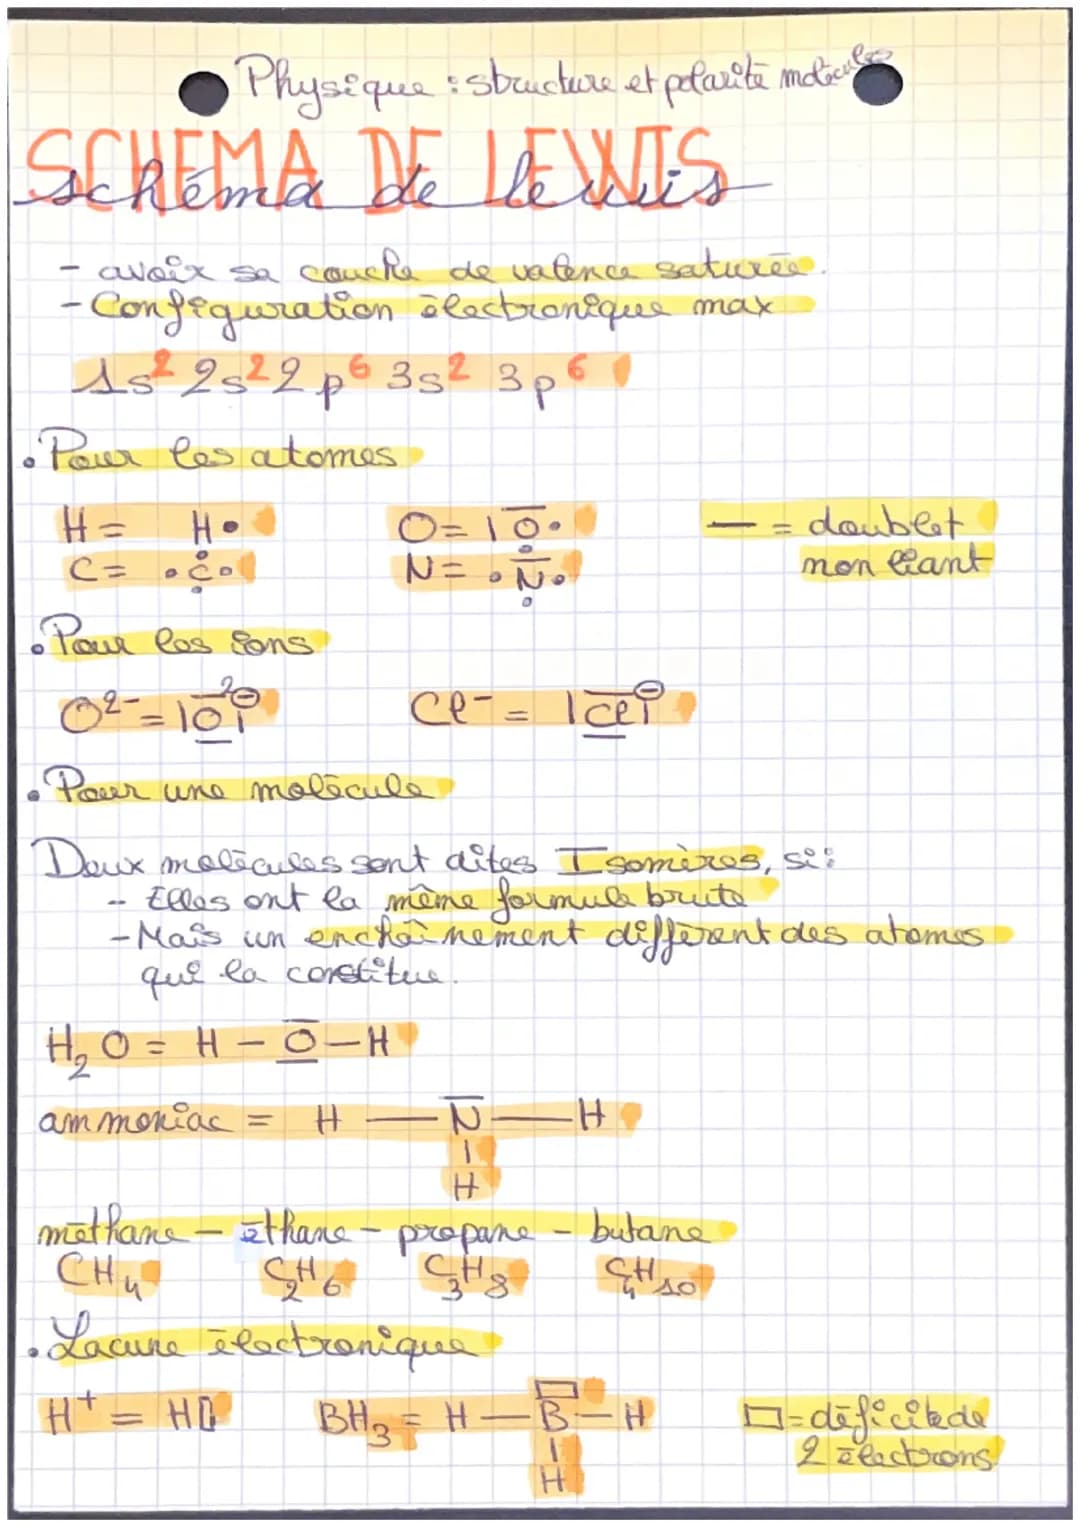 Physique : structure et polarité molécules
SCHEMA DE LEWIS
schéma de lewis
- avoir sa couche de valence saturée.
- Configuration électronique max
1s² 2s² 2p⁶ 3s² 3p⁶
• Pour les atomes
H = H• O = |O̅• — = doublet
C = •C• N = •N̅• non liant
• Pour les ions
O²⁻ = |O̲̅|²⊖ Cl⁻ = |C̲̅l̲̅|⊖
• Pour une molécule
Deux molécules sont dites Isomères, si:
- Elles ont la même formule brute
- Mais un enchaînement différent des atomes
qui la constitue.
H₂O = H – O̲̅ – H
ammoniac = H — N̅ — H
|
H
méthane – éthane – propane – butane
CH₄ C₂H₆ C₃H₈ C₄H₁₀
• Lacune électronique
H⁺ = H▯ BH₃ = H — B — H ▭ = déficit de
| 2 électrons
H